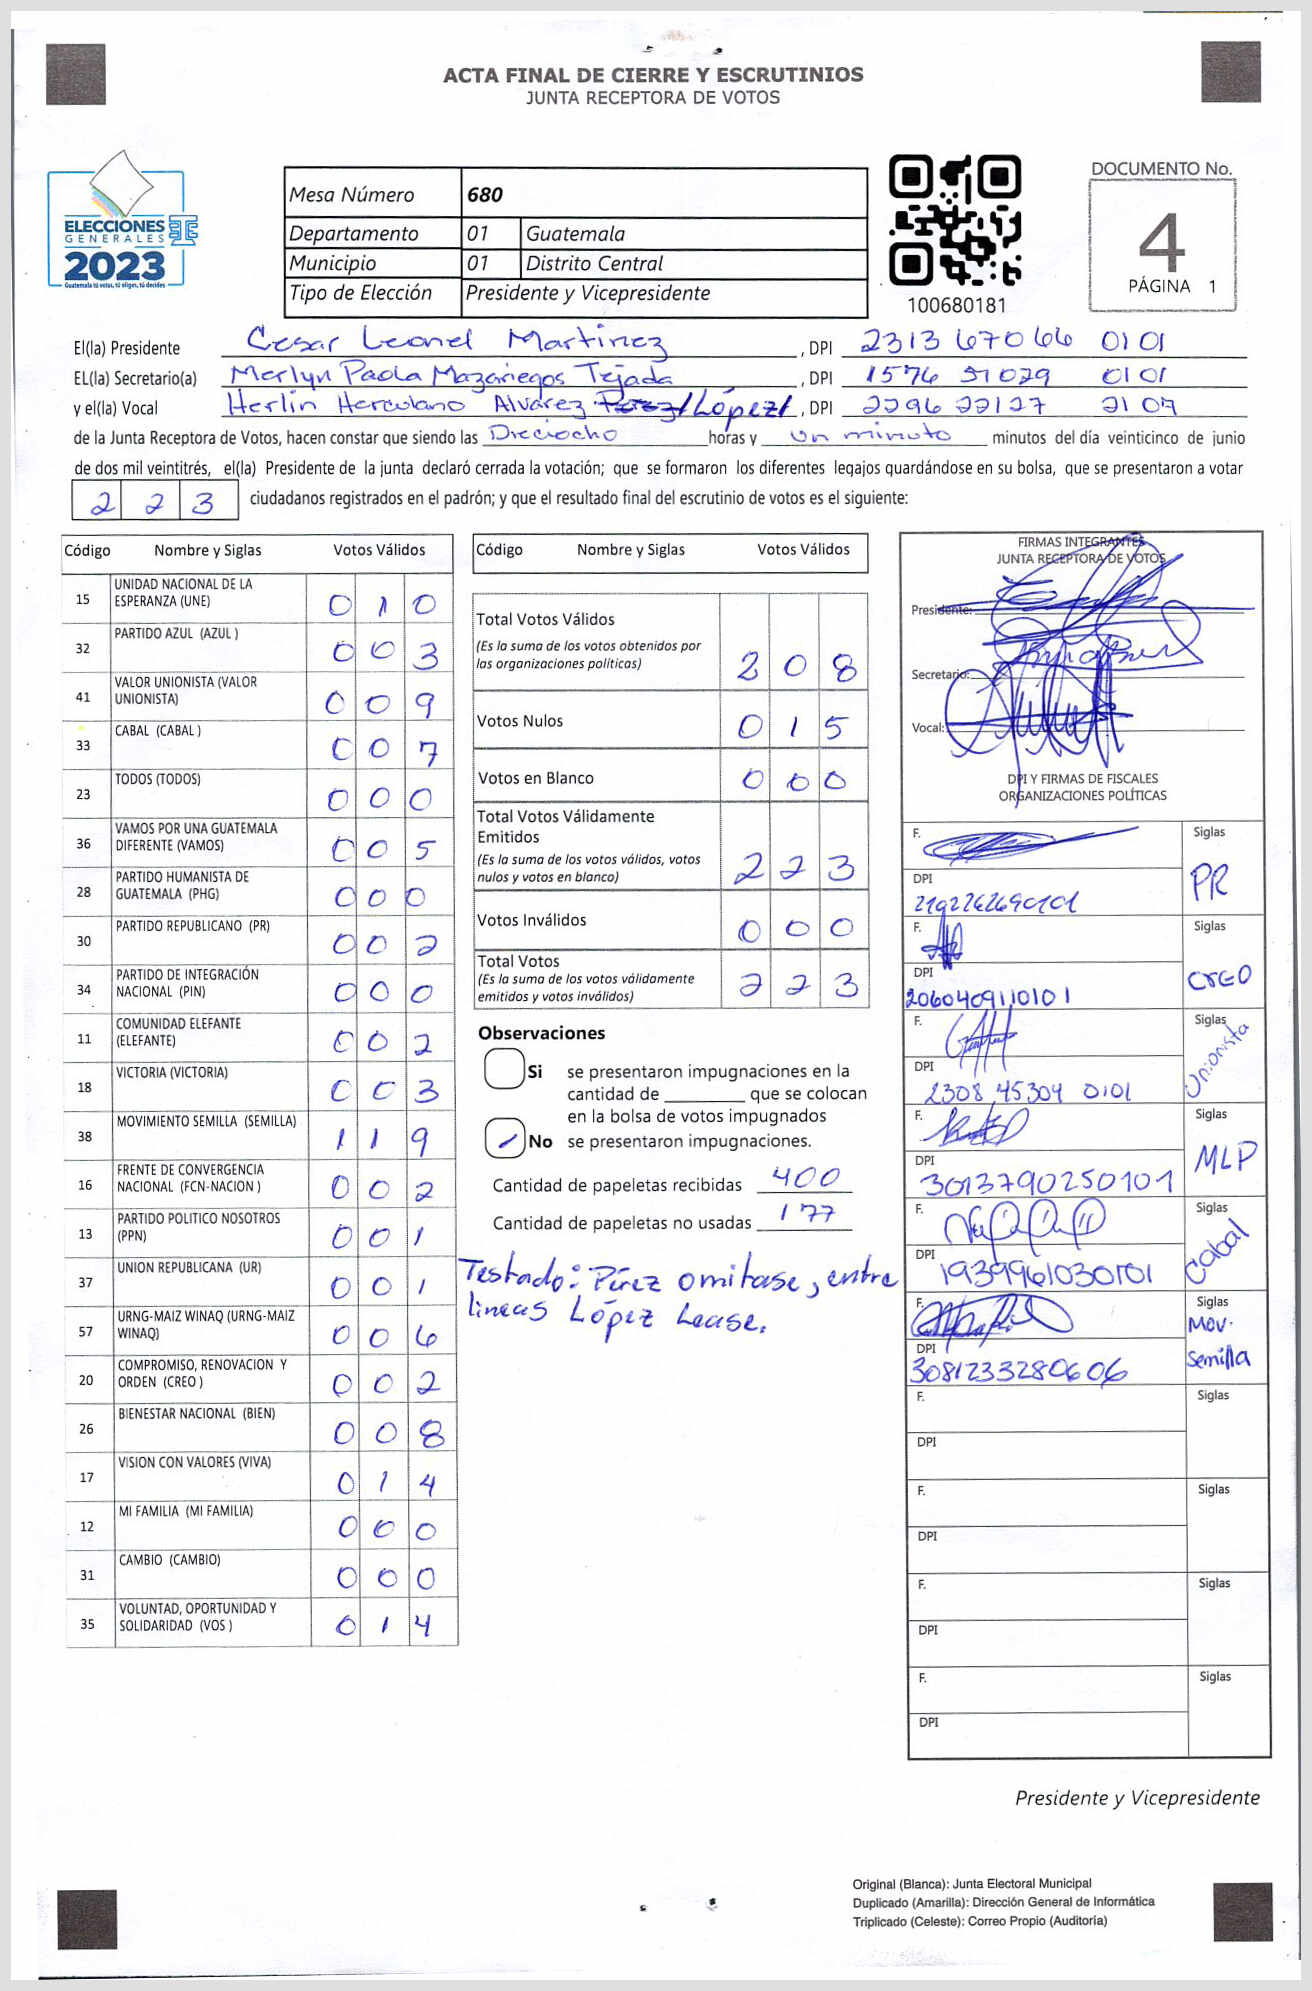 ACTA FINAL DE CIERRE Y ESCRUTINIOS
JUNTA RECEPTORA DE VOTOS
ELECCIONES
GENERALES
2023
Guatemala tú votas, tú eliges, tú decides
TSE
Mesa Número 680
Departamento 01 Guatemala
Municipio 01 Distrito Central
Tipo de Elección Presidente y Vicepresidente
100680181
DOCUMENTO No.
4
PÁGINA 1
El(la) Presidente Cesar Leonel Martinez, DPI 2313 67066 0101
EL(la) Secretario(a) Merlyn Paola Mazariegos Tejada, DPI 1576 51029 0101
y el(la) Vocal Herlin Herculano Alvarez Perez /López/, DPI 2296 22127 2107
de la Junta Receptora de Votos, hacen constar que siendo las Dieciocho horas y un minuto minutos del día veinticinco de junio
de dos mil veintitrés, el(la) Presidente de la junta declaró cerrada la votación; que se formaron los diferentes legajos guardándose en su bolsa, que se presentaron a votar
2 2 3 ciudadanos registrados en el padrón; y que el resultado final del escrutinio de votos es el siguiente:
Código Nombre y Siglas Votos Válidos
15 UNIDAD NACIONAL DE LA ESPERANZA (UNE) 0 1 0
32 PARTIDO AZUL (AZUL ) 0 0 3
41 VALOR UNIONISTA (VALOR UNIONISTA) 0 0 9
33 CABAL (CABAL ) 0 0 7
23 TODOS (TODOS) 0 0 0
36 VAMOS POR UNA GUATEMALA DIFERENTE (VAMOS) 0 0 5
28 PARTIDO HUMANISTA DE GUATEMALA (PHG) 0 0 0
30 PARTIDO REPUBLICANO (PR) 0 0 2
34 PARTIDO DE INTEGRACIÓN NACIONAL (PIN) 0 0 0
11 COMUNIDAD ELEFANTE (ELEFANTE) 0 0 2
18 VICTORIA (VICTORIA) 0 0 3
38 MOVIMIENTO SEMILLA (SEMILLA) 1 1 9
16 FRENTE DE CONVERGENCIA NACIONAL (FCN-NACION ) 0 0 2
13 PARTIDO POLITICO NOSOTROS (PPN) 0 0 1
37 UNION REPUBLICANA (UR) 0 0 1
57 URNG-MAIZ WINAQ (URNG-MAIZ WINAQ) 0 0 6
20 COMPROMISO, RENOVACION Y ORDEN (CREO ) 0 0 2
26 BIENESTAR NACIONAL (BIEN) 0 0 8
17 VISION CON VALORES (VIVA) 0 1 4
12 MI FAMILIA (MI FAMILIA) 0 0 0
31 CAMBIO (CAMBIO) 0 0 0
35 VOLUNTAD, OPORTUNIDAD Y SOLIDARIDAD (VOS ) 0 1 4
Código Nombre y Siglas Votos Válidos
Total Votos Válidos
(Es la suma de los votos obtenidos por
las organizaciones políticas) 2 0 8
Votos Nulos 0 1 5
Votos en Blanco 0 0 0
Total Votos Válidamente
Emitidos
(Es la suma de los votos válidos, votos
nulos y votos en blanco) 2 2 3
Votos Inválidos 0 0 0
Total Votos
(Es la suma de los votos válidamente
emitidos y votos inválidos) 2 2 3
Observaciones
Si se presentaron impugnaciones en la
cantidad de ________ que se colocan
en la bolsa de votos impugnados
No se presentaron impugnaciones.
Cantidad de papeletas recibidas 400
Cantidad de papeletas no usadas 177
Testado: Pérez omitase, entre
lineas López Lease.
FIRMAS INTEGRANTES
JUNTA RECEPTORA DE VOTOS
Presidente:
Secretario:
Vocal:
DPI Y FIRMAS DE FISCALES
ORGANIZACIONES POLÍTICAS
F. Siglas
PR
DPI
F. Siglas
CREO
DPI
2060409110101
F. Siglas
Unionista
DPI
2308 45304 0101
F. Siglas
MLP
DPI
3013790250101
F. Siglas
Cabal
DPI
1939961030101
F. Siglas
Mov.
Semilla
DPI
3081233280606
F. Siglas
DPI
F. Siglas
DPI
F. Siglas
DPI
F. Siglas
DPI
Presidente y Vicepresidente
Original (Blanca): Junta Electoral Municipal
Duplicado (Amarilla): Dirección General de Informática
Triplicado (Celeste): Correo Propio (Auditoría)